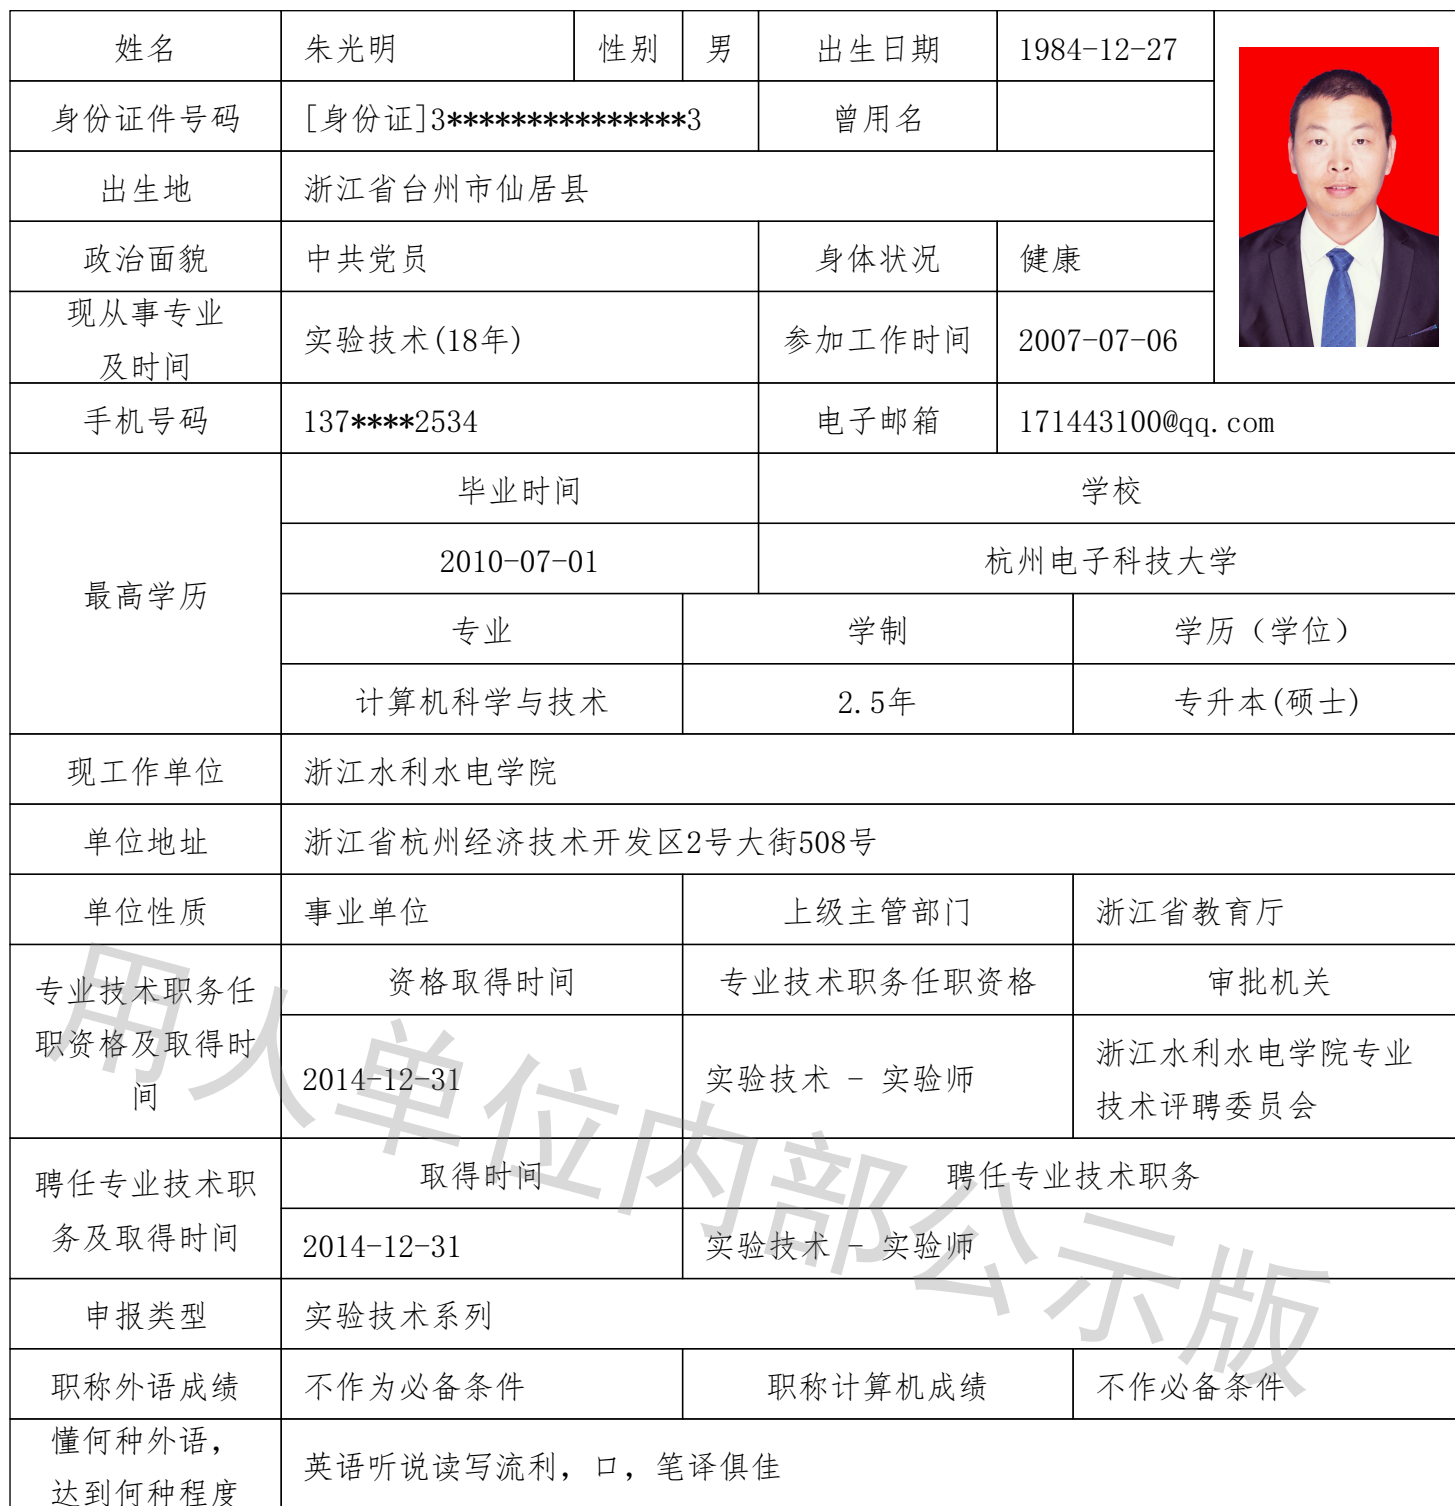 姓名 朱光明 性别 男 出生日期 1984-12-27
身份证件号码 [身份证]3***************3 曾用名
出生地 浙江省台州市仙居县
政治面貌 中共党员 身体状况 健康
现从事专业
及时间
实验技术(18年) 参加工作时间 2007-07-06
手机号码 137****2534 电子邮箱 171443100@qq.com
最高学历
毕业时间 学校
2010-07-01 杭州电子科技大学
专业 学制 学历（学位）
计算机科学与技术 2.5年 专升本(硕士)
现工作单位 浙江水利水电学院
单位地址 浙江省杭州经济技术开发区2号大街508号
单位性质 事业单位 上级主管部门 浙江省教育厅
专业技术职务任
职资格及取得时
间
资格取得时间 专业技术职务任职资格 审批机关
2014-12-31 实验技术 - 实验师 浙江水利水电学院专业
技术评聘委员会
聘任专业技术职
务及取得时间
取得时间 聘任专业技术职务
2014-12-31 实验技术 - 实验师
申报类型 实验技术系列
职称外语成绩 不作为必备条件 职称计算机成绩 不作必备条件
懂何种外语，
达到何种程度
英语听说读写流利，口，笔译俱佳
用人单位内部公示版